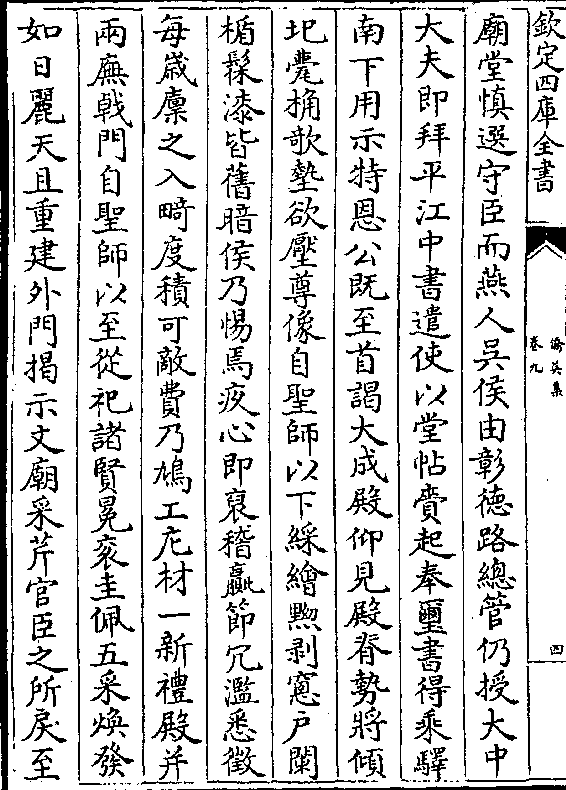 欽定四庫全書
僑吳集
卷九
四
廟堂慎選守臣而燕人吳侯由彰德路總管仍授大中
大夫即拜平江中書遣使以堂帖賫起奉璽書得乘驛
南下用示特恩公既至首謁大成殿仰見殿脊勢將傾
圯甍桷欹墊欲壓尊像自聖師以下綵繪黝剥窻戶闌
楯髹漆皆舊暗侯乃惕焉疚心即裒稽贏節冗濫悉徵
每嵗廩之入畸度積可敵費乃鳩工庀材一新禮殿并
兩廡㦸門自聖師以至從祀諸賢冕衮圭佩五采煥發
如日麗天且重建外門揭示文廟采芹官臣之所戾至